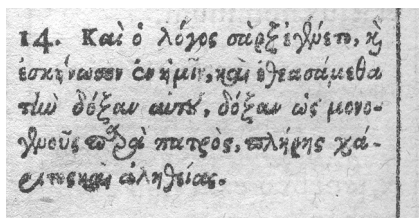 14. Καὶ ὁ λόγος σὰρξ ἐγένετο, ϗ
ἐσκήνωσεν ἐν ἡμῖν, καὶ ἐθεασάμεθα
τὴν δόξαν αυτοῦ, δόξαν ὡς μονο-
γενοῦς παρὰ πατρὸς, πλήρης χά-
ριτος καὶ ἀληθείας.